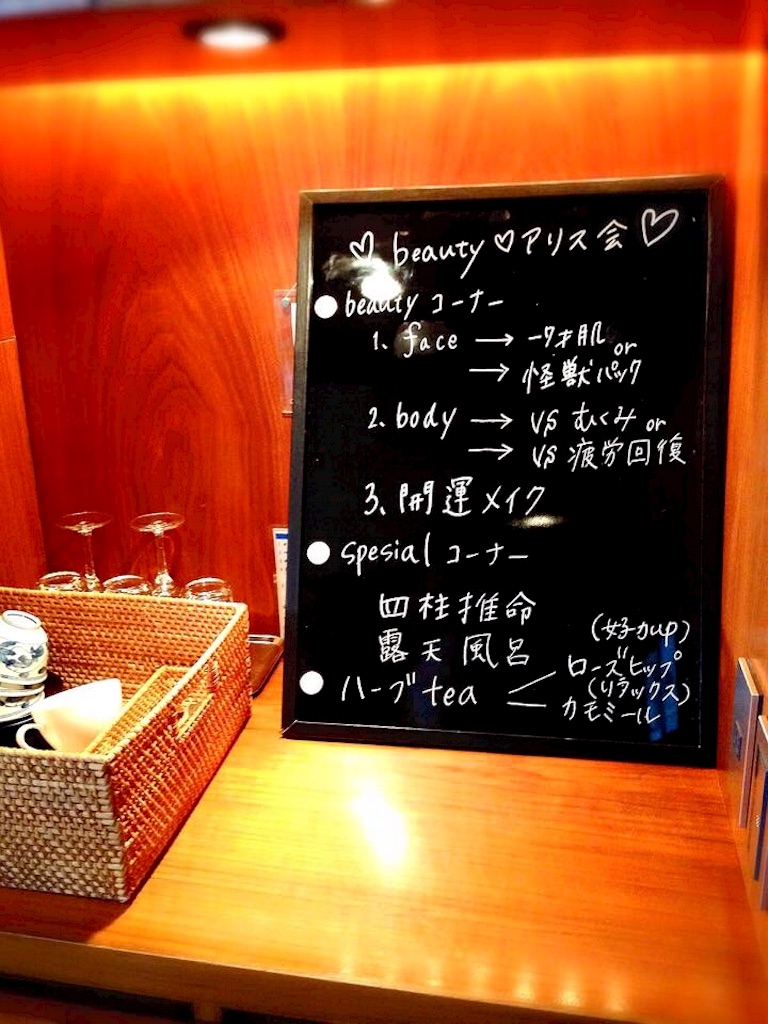 ♡ beauty ♡ アリス会 ♡
beauty コーナー
1. face → -7才肌 or
→ 怪獣パック
2. body → VS むくみ or
→ VS 疲労回復
3. 開運メイク
spesial コーナー
四柱推命
露天風呂
(女子力up)
ハーブtea ローズヒップ
(リラックス)
カモミール